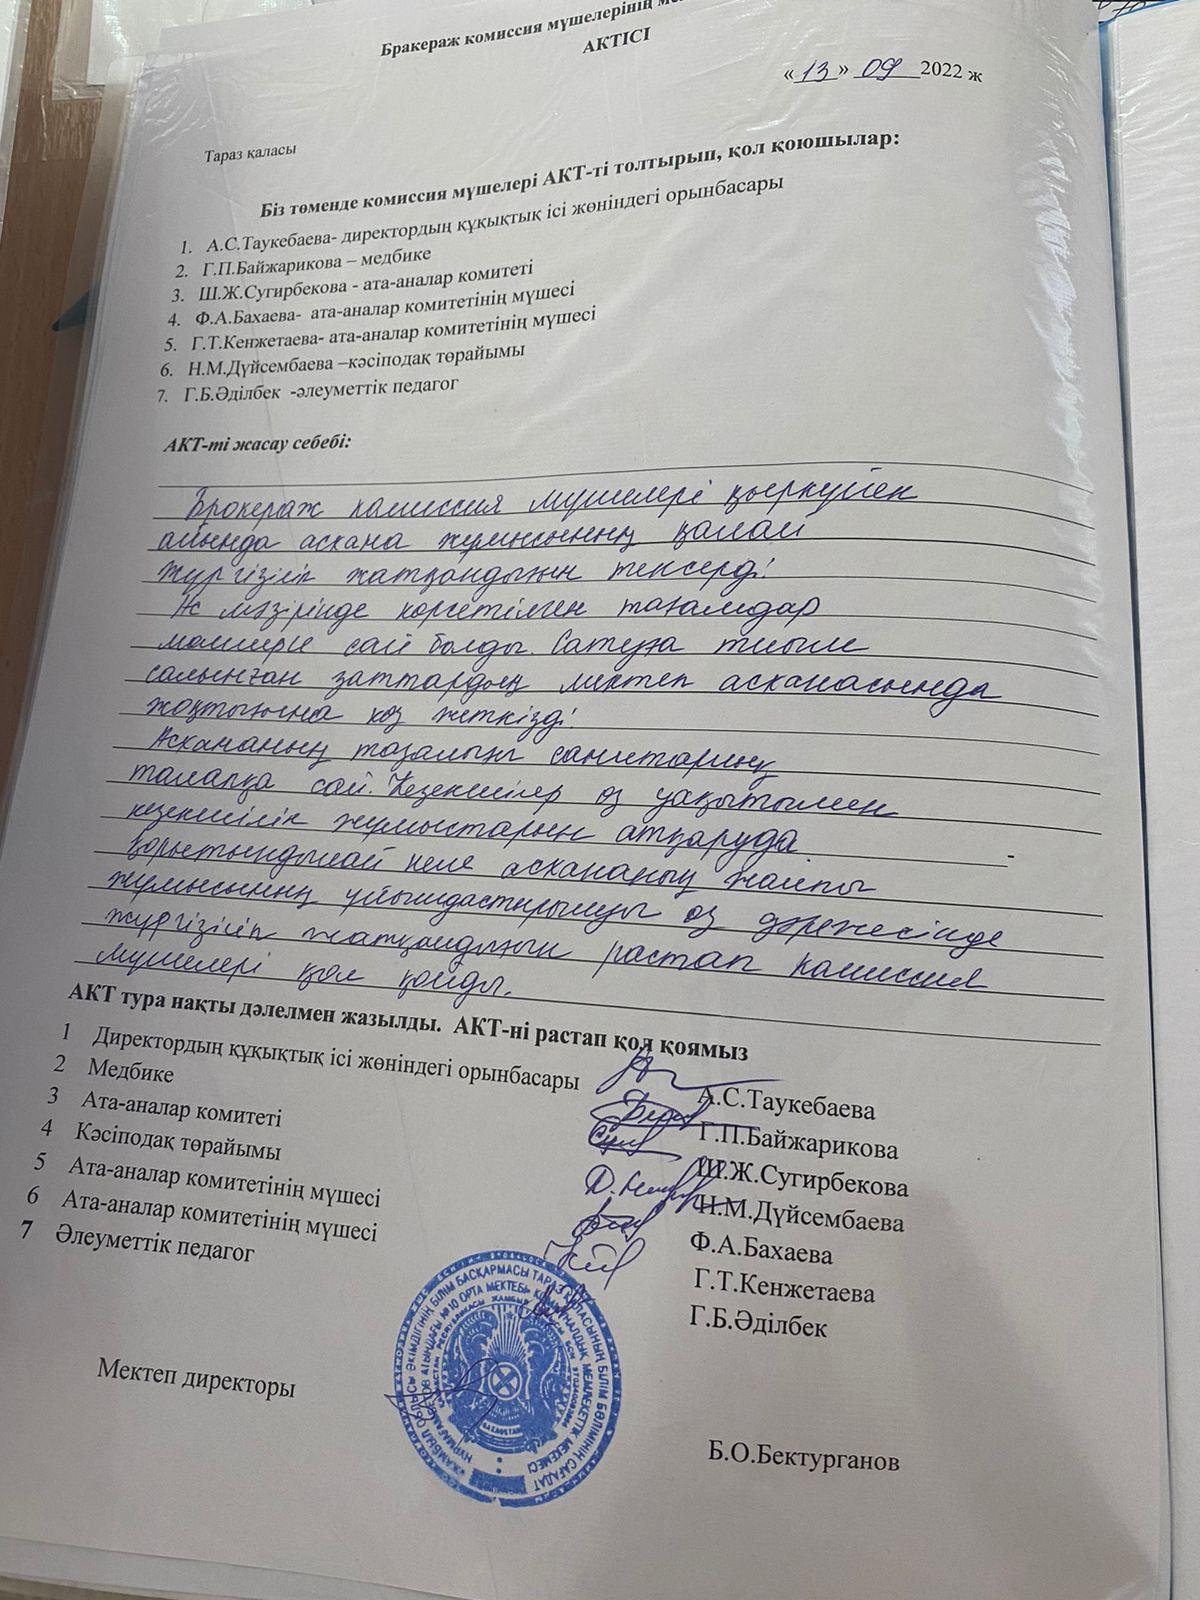 Бракераж комиссия мүшелерінің
АКТІСІ
«13» 09 2022 ж
Тараз қаласы
Біз төменде комиссия мүшелері АКТ-ті толтырып, қол қоюшылар:
1. А.С.Таукебаева- директордың құқықтық ісі жөніндегі орынбасары
2. Г.П.Байжарикова – медбике
3. Ш.Ж.Сугирбекова - ата-аналар комитеті
4. Ф.А.Бахаева- ата-аналар комитетінің мүшесі
5. Г.Т.Кенжетаева- ата-аналар комитетінің мүшесі
6. Н.М.Дүйсембаева –кәсіподақ төрайымы
7. Г.Б.Әділбек -әлеуметтік педагог
АКТ-ті жасау себебі:
Брокераж камиссия мүшелері қыркүйек
айында асхана жұмысының қалай
жүргізіліп жатқандығын тексерді.
Ас мәзірінде көрсетілген тағамдар
мөлшері сай болды. Сатуға тиым
салынған заттардың мектеп асханасында
жоқтығына көз жеткізді.
Асхананың тазалығы санитарлық
талапқа сай. Кезекшілер өз уақытымен
кезекшілік жұмыстарын атқаруда
Қорытындылай келе асхананың жалпы
жұмысының ұйымдастырылуы өз дәрежесінде
жүргізіліп жатқандығын растап камиссия
мүшелері қол қойды.
АКТ тура нақты дәлелмен жазылды. АКТ-ні растап қол қоямыз
1 Директордың құқықтық ісі жөніндегі орынбасары А.С.Таукебаева
2 Медбике Г.П.Байжарикова
3 Ата-аналар комитеті Ш.Ж.Сугирбекова
4 Кәсіподақ төрайымы Н.М.Дүйсембаева
5 Ата-аналар комитетінің мүшесі Ф.А.Бахаева
6 Ата-аналар комитетінің мүшесі Г.Т.Кенжетаева
7 Әлеуметтік педагог Г.Б.Әділбек
Мектеп директоры Б.О.Бектурганов
ЖАМБЫЛ ОБЛЫСЫ ӘКІМДІГІНІҢ БІЛІМ БАСҚАРМАСЫ ТАРАЗ ҚАЛАСЫНЫҢ БІЛІМ БӨЛІМІНІҢ САҒАДАТ
НҰРМАҒАМБЕТОВ АТЫНДАҒЫ №10 ОРТА МЕКТЕБІ КОММУНАЛДЫҚ МЕМЛЕКЕТТІК МЕКЕМЕСІ